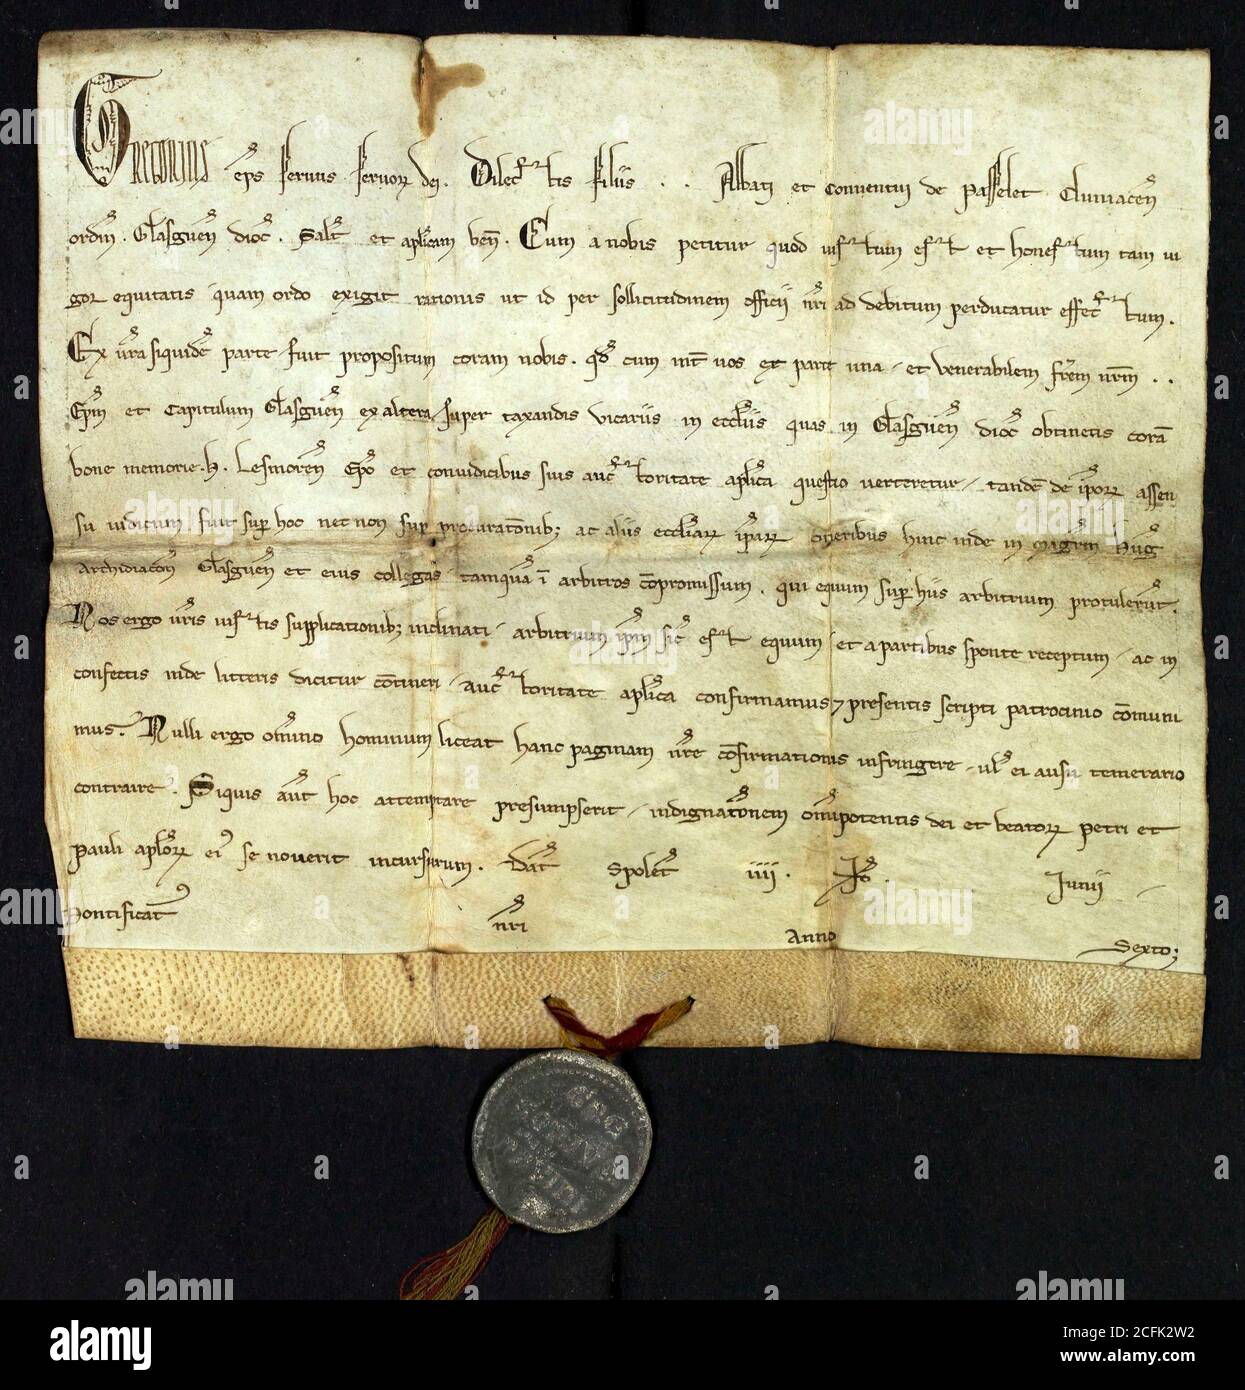 Gregorius ep̄s servus servoꝝ dei. Dilectis filiis . . Abbati et conventui de Passelet Cluniaceñ
ordiñ. Glasgueñ dioc̄. Salt̄ et aplicam beñ. Cum a nobis petitur quod iustum est et honestum tam vi
goꝝ equitatis quam ordo exigit rationis ut id per sollicitudinem officii nr̄i ad debitum perducatur effectum.
Ex vr̄a siquidē parte fuit propositum coram nobis. qd̄ cum int̄ vos ex parte una et venerabilem fr̄em nr̄m . .
Ep̄m et Capitulum Glasgueñ ex altera super taxandis vicariis in eccliis quas in Glasgueñ dioc̄ obtinetis corā
bone memorie . H. Lesmoreñ Ep̄o et coniudicibus suis auctoritate aplica questio verteretur tandē de ip̄oꝝ assen
su iudicum fuit sup̄ hoc nec non sup̄ procurat̄onib; ac aliis eccl̄iaꝝ ip̄aꝝ oneribus hinc inde in magr̄m Hug̃
Archidiacoñ Glasgueñ et eius collegas tamquā ī arbitros cōpromissum. qui equum sup̄ hiis arbitrium protulerūt.
Nos ergo vr̄is iustis supplicationib; inclinati arbitrium ip̄m sic̄ est equum et a partibus sponte receptum ac in
confectis inde litteris dicitur cōtineri auctoritate aplica confirmamus ⁊ presentis scripti patrocinio cōmuni
mus. Nulli ergo om̄ino hominum liceat hanc paginam nr̄e cōfirmationis infringere vl̄ ei ausu temerario
contraire. Siquis aut̄ hoc attemptare presumpserit indignat̄onem om̄ipotentis dei et beatoꝝ Petri et
Pauli aploꝝ ei' se noverit incursurum. Dat̄ Spolet̄ iiii . Id̄ . Junii
Pontificat' nr̄i Anno Sexto;
alamy
Image ID: 2CFK2W2
www.alamy.com